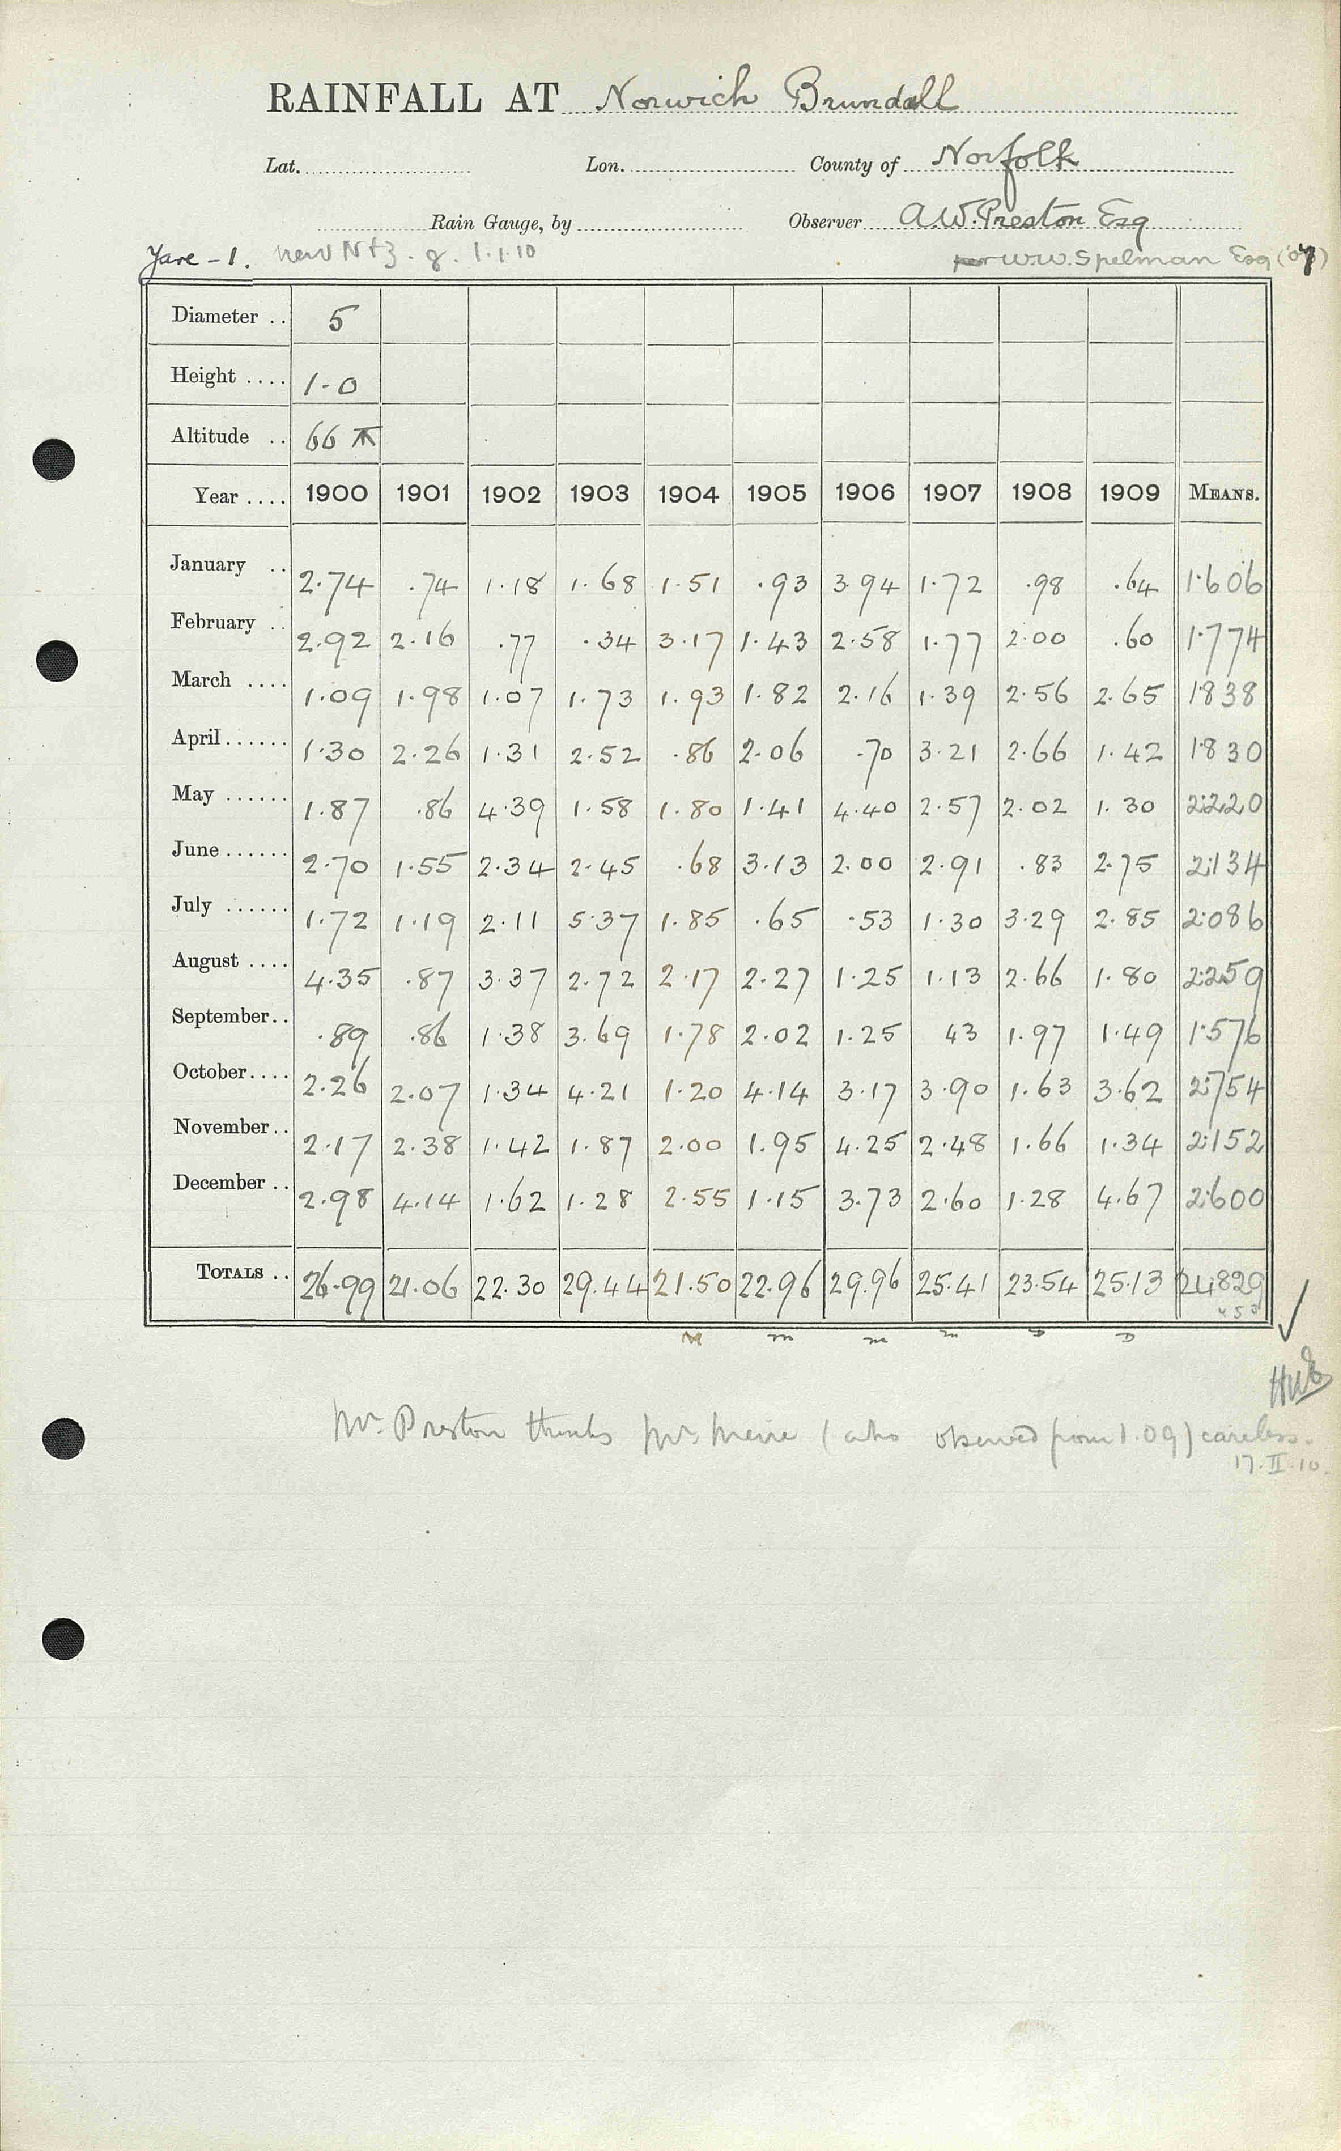 RAINFALL AT Norwich Brundall
Lat. Lon. County of Norfolk
Rain Gauge, by Observer A.W. Preston Esq
Yare - 1. new N+3. g. 1.1.10 per W.W. Spelman Esq ('07)
Diameter .. 5
Height .... 1-0
Altitude .. 66
Year .... 1900 1901 1902 1903 1904 1905 1906 1907 1908 1909 MEANS.
January .. 2.74 .74 1.18 1.68 1.51 .93 3.94 1.72 .98 .64 1.606
February .. 2.92 2.16 .77 .34 3.17 1.43 2.58 1.77 2.00 .60 1.774
March .... 1.09 1.98 1.07 1.73 1.93 1.82 2.16 1.39 2.56 2.65 1838
April ...... 1.30 2.26 1.31 2.52 .86 2.06 .70 3.21 2.66 1.42 1.830
May ...... 1.87 .86 4.39 1.58 1.80 1.41 4.40 2.57 2.02 1.30 2.220
June ...... 2.70 1.55 2.34 2.45 .68 3.13 2.00 2.91 .83 2.75 2.134
July ...... 1.72 1.19 2.11 5.37 1.85 .65 .53 1.30 3.29 2.85 2.086
August .... 4.35 .87 3.37 2.72 2.17 2.27 1.25 1.13 2.66 1.80 2.259
September.. .89 .86 1.38 3.69 1.78 2.02 1.25 43 1.97 1.49 1.576
October.... 2.26 2.07 1.34 4.21 1.20 4.14 3.17 3.90 1.63 3.62 2.754
November.. 2.17 2.38 1.42 1.87 2.00 1.95 4.25 2.48 1.66 1.34 2.152
December .. 2.98 4.14 1.62 1.28 2.55 1.15 3.73 2.60 1.28 4.67 2.600
TOTALS .. 26.99 21.06 22.30 29.44 21.50 22.96 29.96 25.41 23.54 25.13 24.829
Mr. Preston thinks Mr. (who observed from 1.09) careless.
17.II.10.